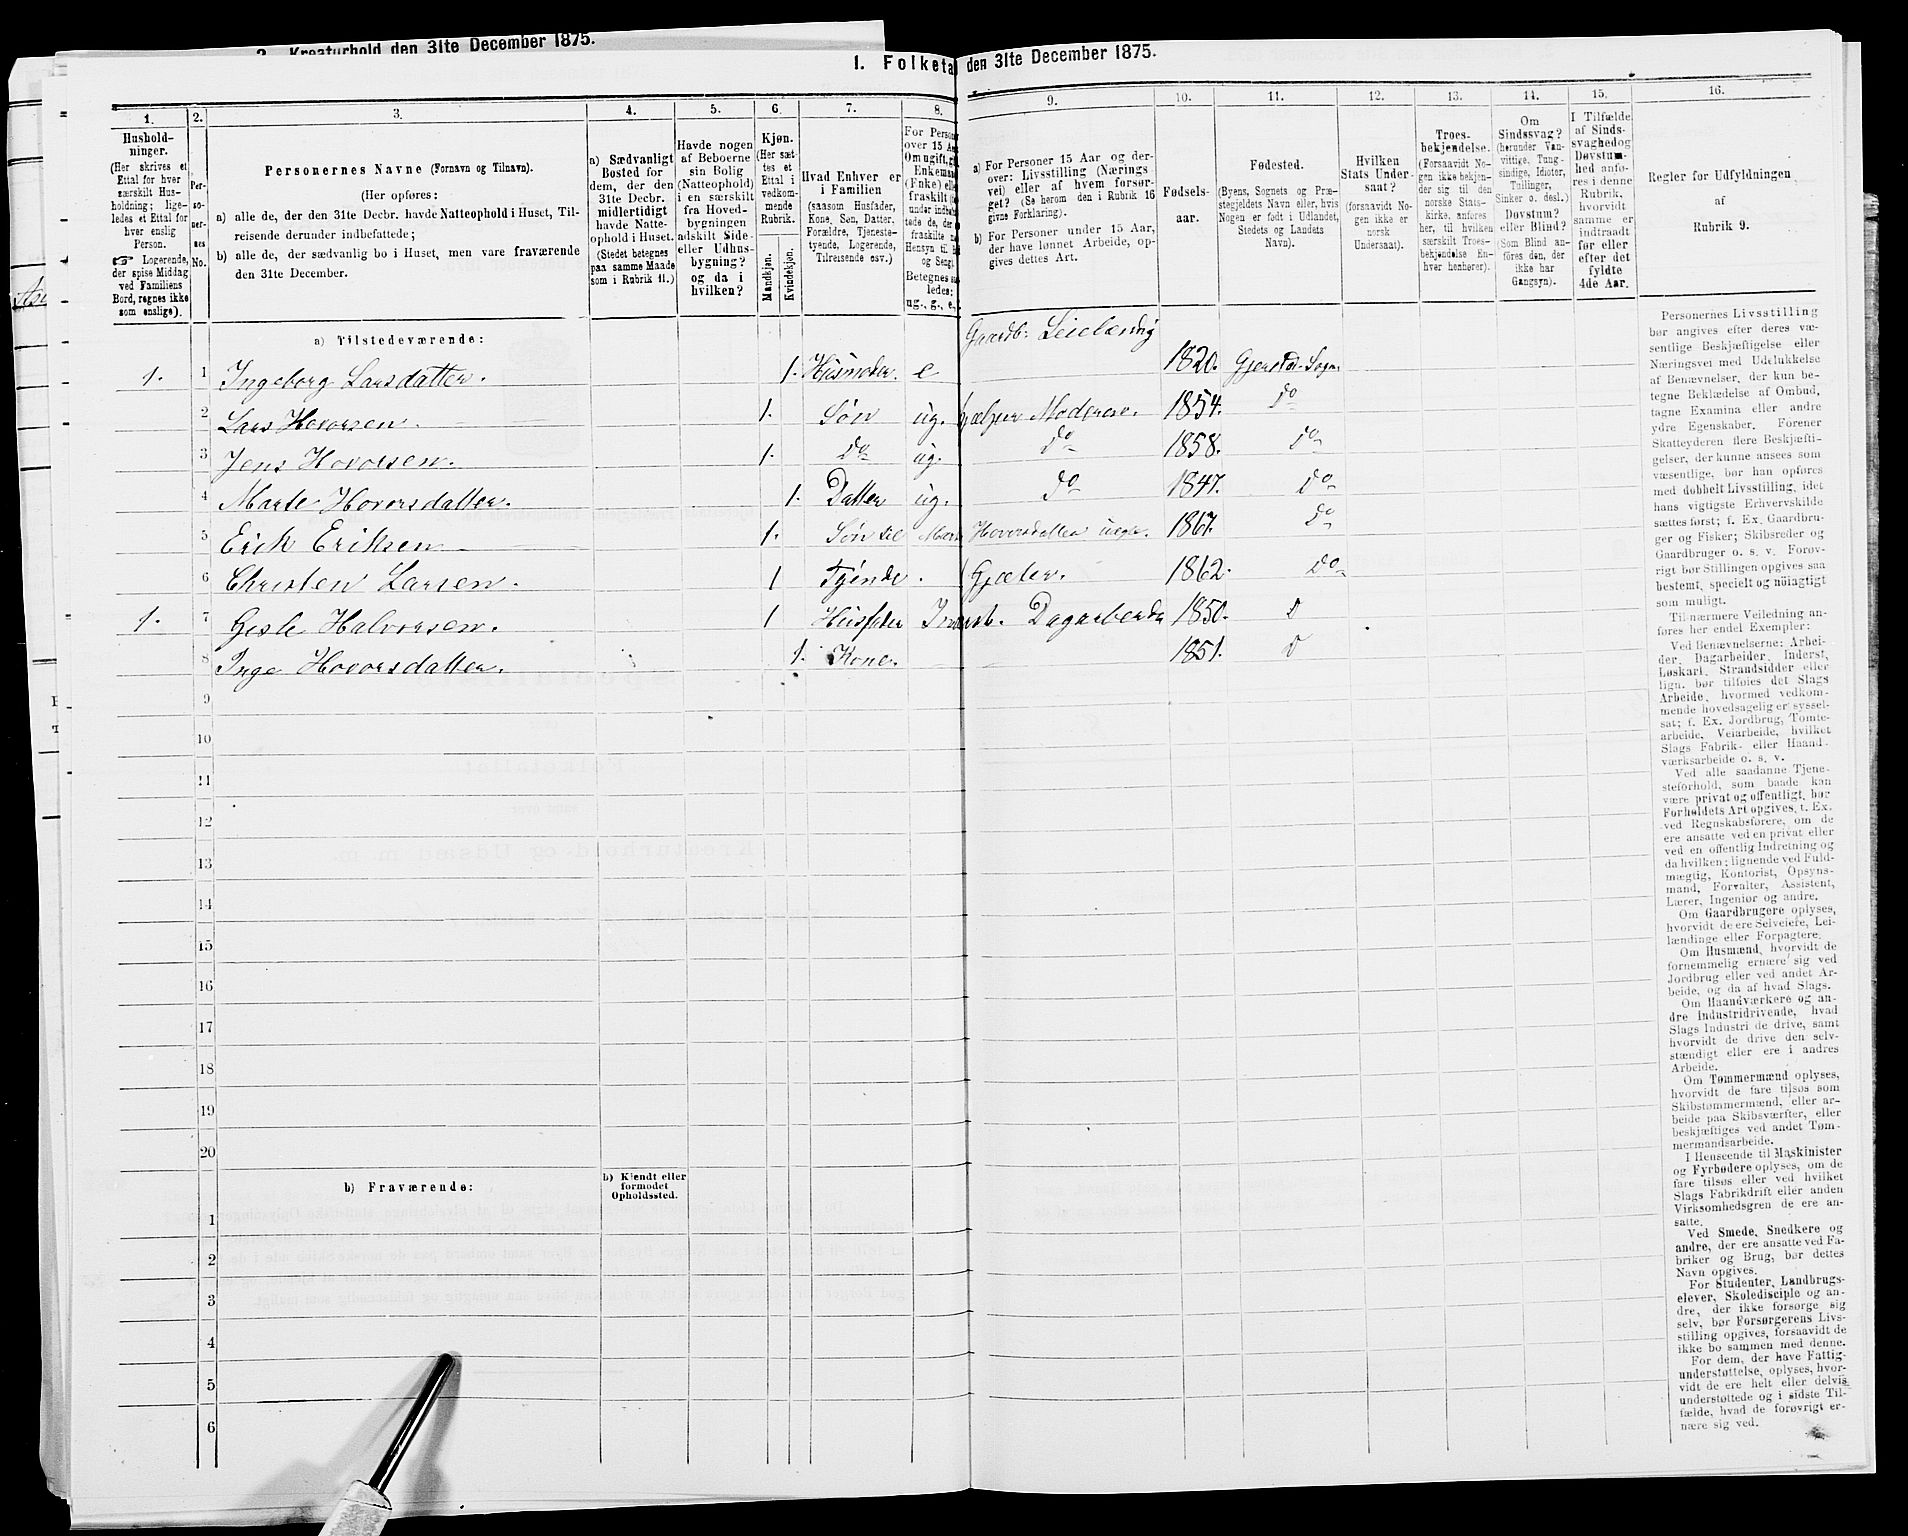 2. Kreaturhold den 31te December 1875.
1. Folketal den 31te December 1875.
1.
Hushold-
ninger.
(Her skrives et
Ettal for hver
særskilt Hus-
holdning; lige-
ledes et Ettal for
hver enslig
Person.
☞ Logerende,
der spise Middag
ved Familiens
Bord, regnes ikke
som enslige).
2.
Per-
so-
ner-
nes
No.
3.
Personernes Navne (Fornavn og Tilnavn).
(Her opføres:
a) alle de, der den 31te Decbr. havde Natteophold i Huset, Til-
reisende derunder indbefattede;
b) alle de, der sædvanlig bo i Huset, men vare fraværende
den 31te December.
4.
a) Sædvanligt
Bosted for
dem, der den
31te Decbr.
midlertidigt
havde Natte-
ophold i Huset.
(Stedet betegnes
paa samme Maade
som i Rubrik 11.)
5.
Havde nogen
af Beboerne
sin Bolig
(Natteophold)
i en særskilt
fra Hoved-
bygningen
adskilt Side-
eller Udhus-
bygning?
og da i
hvilken?
6.
Kjøn.
(Her sæt-
tes et
Ettal i
vedkom-
mende
Rubrik.
Mandkjøn.
Kvindekjøn.
7.
Hvad Enhver er
i Familien
(saasom Husfader,
Kone, Søn, Datter,
Forældre, Tjeneste-
tyende, Logerende,
Tilreisende osv.)
8.
For Personer
over 15 Aar
Om ugift, gift,
Enkemand
(Enke) eller
fraskilt
Betegnes saa-
ledes:
ug., g., e.,
9.
a) For Personer 15 Aar og der-
over: Livsstilling (Nærings-
vei) eller af hvem forsør-
get? (Se herom den i Rubrik 16
givne Forklaring).
b) For Personer under 15 Aar,
der have lønnet Arbeide, op-
gives dettes Art.
10.
Fødsels-
aar.
11.
Fødested.
(Byens, Sognets og Præ-
stegjeldets Navn eller, hvis
Nogen er født i Udlandet,
Stedets og Landets
Navn).
12.
Hvilken
Stats Under-
saat?
(forsaavidt No-
gen ikke er
norsk
Undersaat).
13.
Troes-
bekjendelse.
(Forsaavidt No-
gen ikke bekjen-
der sig til den
norske Stats-
kirke, anføres
her, til hvilken
særskilt Troes-
bekjendelse En-
hver henhører).
14.
Om
Sindssvag?
(herunder Van-
vittige, Tung-
sindige, Idioter,
Tullinger,
Sinker o. desl.)
Døvstum?
eller Blind?
(Som Blind an-
føres den, der
ikke har
Gangsyn).
15.
I Tilfælde
af Sinds-
svaghed og
Døvstum-
hed anfø-
res i denne
Rubrik,
hvorvidt
samme er
indtraadt
før eller
efter det
fyldte
4de Aar.
16.
Regler for Udfyldningen
af
Rubrik 9.
a) Tilstedeværende:
Gaardb. Leielændig
1. 1 Ingeborg Larsdatter. 1. Husmoder. e 1820. Gjerstad Sogn.
2 Lars Hovorsen. 1. Søn ug. hjælper Moderen. 1854. Do
3 Jens Hovorsen. 1. Do ug. Do 1858. Do
4 Marte Hovorsdatter. 1. Datter ug. Do 1847. Do
5 Erik Eriksen 1. Søn til Marte Hovorsdatter uægt. 1867. Do
6 Christen Larsen. 1 Tjende. Gjæter. 1862. Do
1. 7 Gisle Halvorsen. 1 Husfader Inderst. Dagarbeider 1850. D
8 Inge Hovorsdatter. 1. Kone. 1851. D
9
10
11
12
13
14
15
16
17
18
19
20
b) Fraværende:
b) Kjendt eller
formodet
Opholdssted.
1
2
3
4
5
6
Personernes Livsstilling
bør angives efter deres væ-
sentlige Beskjæftigelse eller
Næringsvei med Udelukkelse
af Benævnelser, der kun be-
tegne Beklædelse af Ombud,
tagne Examina eller andre
ydre Egenskaber. Forener
Skatteyderen flere Beskjæfti-
gelser, der kunne ansees som
væsentlige, bør han opføres
med dobbelt Livsstilling, idet
hans vigtigste Erhvervskilde
sættes først; f. Ex. Gaardbru-
ger og Fisker; Skibsreder og
Gaardbruger o. s. v. Forøv-
rigt bør Stillingen opgives saa
bestemt, specielt og nøiagtigt
som muligt.
Til nærmere Veiledning an-
føres her endel Exempler:
Ved Benævnelserne: Arbei-
der, Dagarbeider, Inderst,
Løskarl, Strandsidder eller
lign. bør tilføies det Slags
Arbeide, hvormed vedkom-
mende hovedsagelig er syssel-
sat; f. Ex. Jordbrug, Tomte-
arbeide, Veiarbeide, hvilket
Slags Fabrik- eller Haand-
værksarbeide o. s. v.
Ved alle saadanne Tjene-
steforhold, som baade kan
være privat og offentligt, bør
Forholdets Art opgives, t. Ex.
ved Regnskabsførere, om de
ere ansatte ved en privat eller
ved en offentlig Indretning og
da hvilken; lignende ved Fuld-
mægtig, Kontorist, Opsyns-
mand, Forvalter, Assistent,
Lærer, Ingeniør og andre.
Om Gaardbrugere oplyses,
hvorvidt de ere Selveiere, Lei-
lændinge eller Forpagtere.
Om Husmænd, hvorvidt de
fornemmelig ernære sig ved
Jordbrug eller ved andet Ar-
beide, og da af hvad Slags.
Om Haandværkere og an-
dre Industridrivende, hvad
Slags Industri de drive, samt
hvorvidt de drive den selv-
stændigt eller ere i andres
Arbeide.
Om Tømmermænd oplyses,
hvorvidt de fare tilsøs som
Skibstømmermænd, eller ar-
beide paa Skibsværfter, eller
beskjæftiges ved andet Tøm-
mermandsarbeide.
I Henseende til Maskinister
og Fyrbødere oplyses, om de
fare tilsøs eller ved hvilket
Slags Fabrikdrift eller anden
Virksomhedsgren de ere an-
satte.
Ved Smede, Snedkere og
andre, der ere ansatte ved Fa-
briker og Brug, bør dettes
Navn opgives.
For Studenter, Landbrugs-
elever, Skoledisciple og an-
dre, der ikke forsørge sig
selv, bør Forsørgerens Livs-
stilling opgives, forsaavidt de
ikke bo sammen med denne.
For dem, der have Fattig-
understøttelse, oplyses, hvor-
vidt de ere helt eller delvis
understøttede og i sidste Til-
fælde, hvad de forøvrigt er-
nære sig ved.